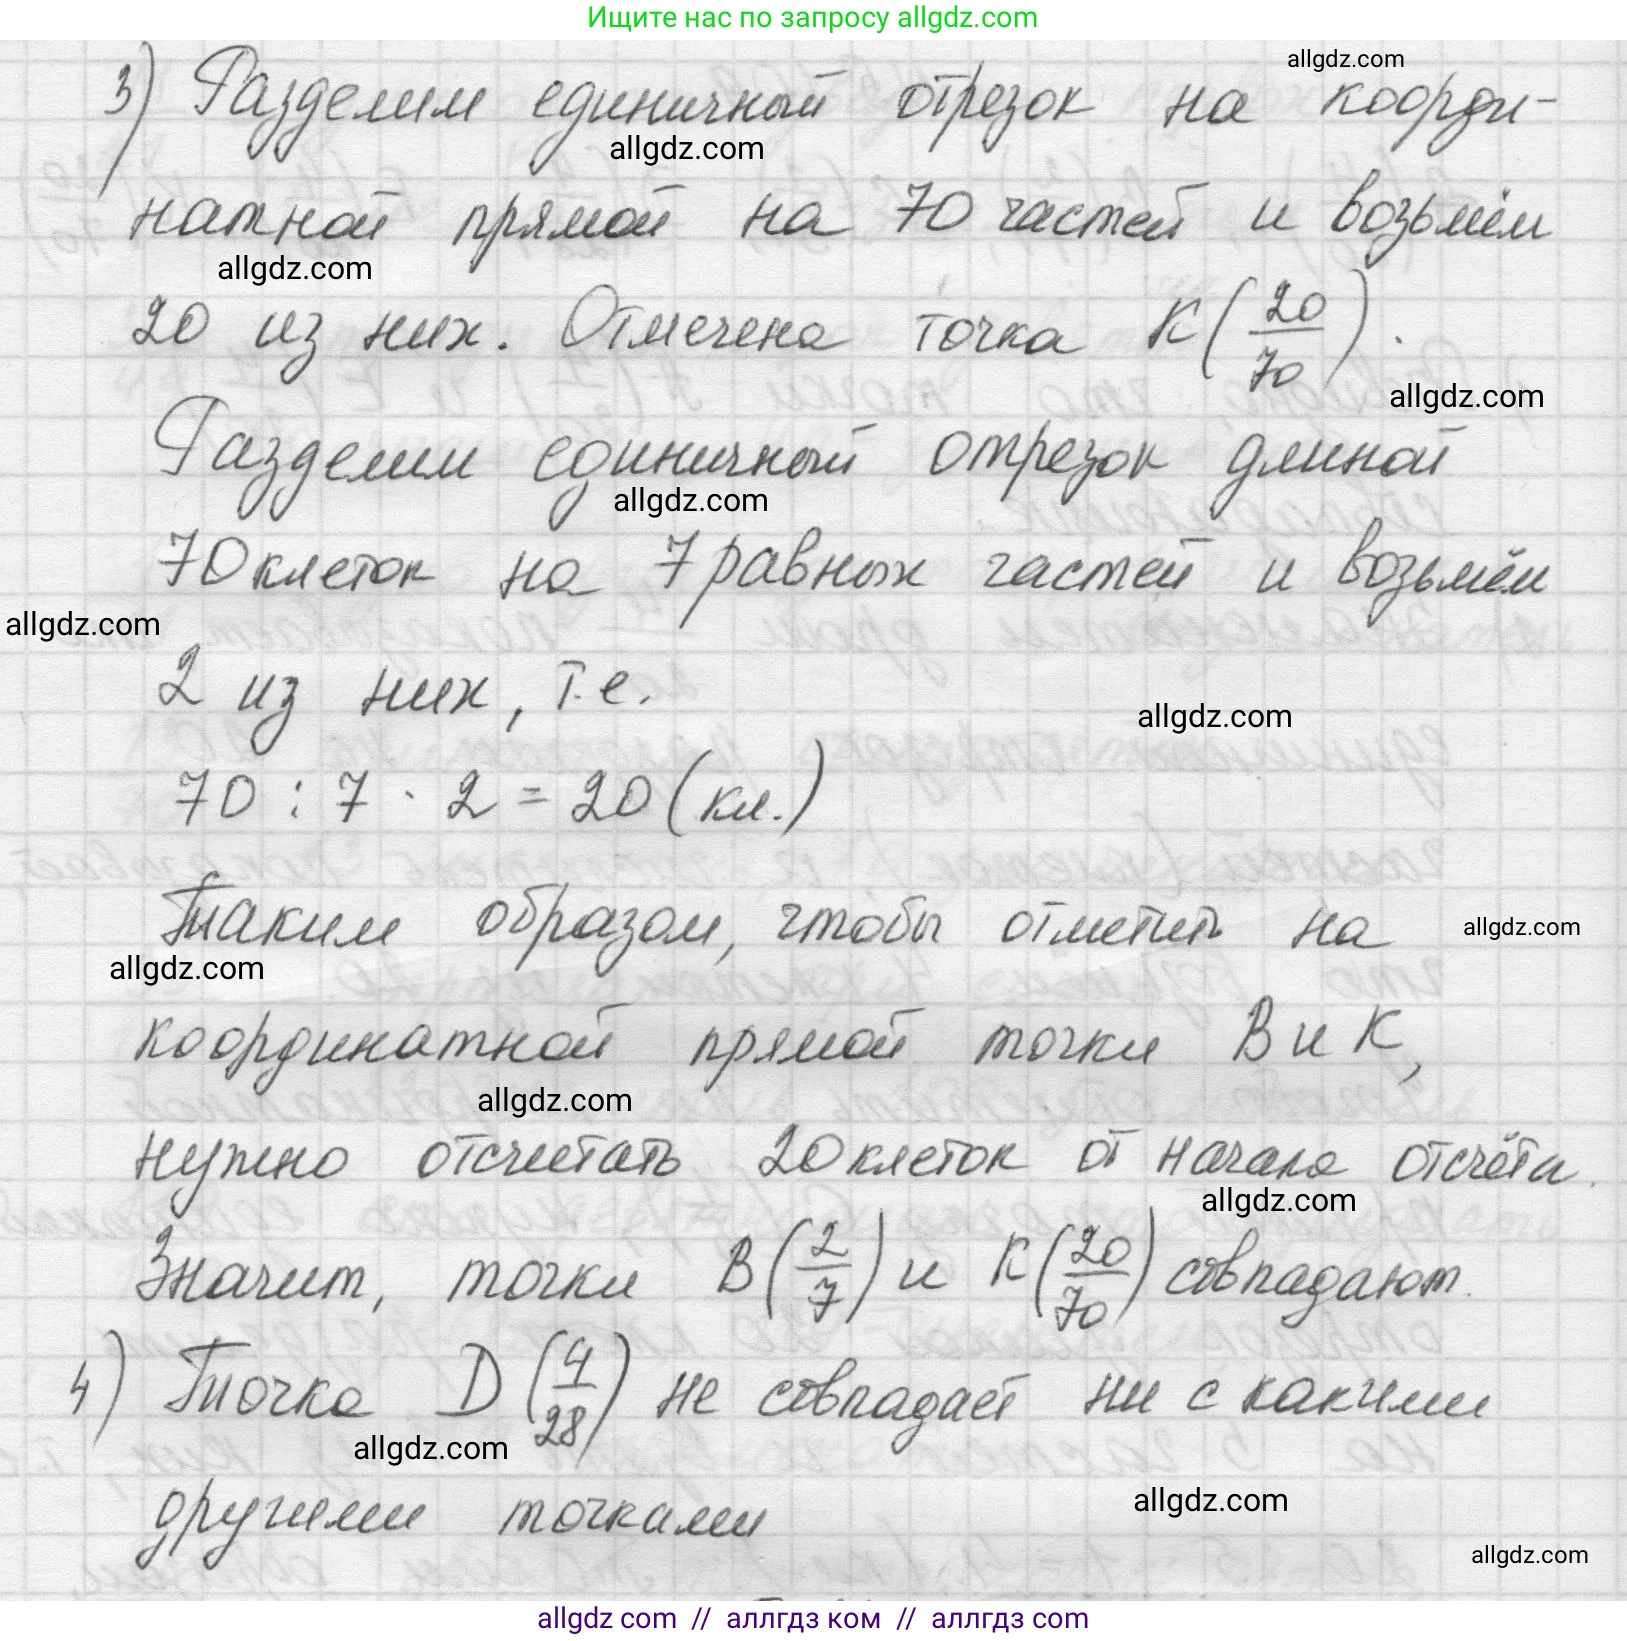 Ищите нас по запросу allgdz.com
allgdz.com
3) Разделим единичный отрезок на коорди-
allgdz.com
натной прямой на 70 частей и возьмём
allgdz.com
20 из них. Отмечена точка K(20/70).
allgdz.com
Разделим единичный отрезок длиной
allgdz.com
70 клеток на 7 равных частей и возьмём
allgdz.com
2 из них, т.е.
allgdz.com
70 : 7 · 2 = 20 (кл.)
Таким образом, чтобы отметить на
allgdz.com
allgdz.com
координатной прямой точки B и K,
allgdz.com
нужно отсчитать 20 клеток от начала отсчёта.
allgdz.com
Значит, точки B(2/7) и K(20/70) совпадают.
4) Точка D(4/28) не совпадает ни с какими
allgdz.com
другими точками
allgdz.com
allgdz.com
allgdz com // аллгдз ком // аллгдз com